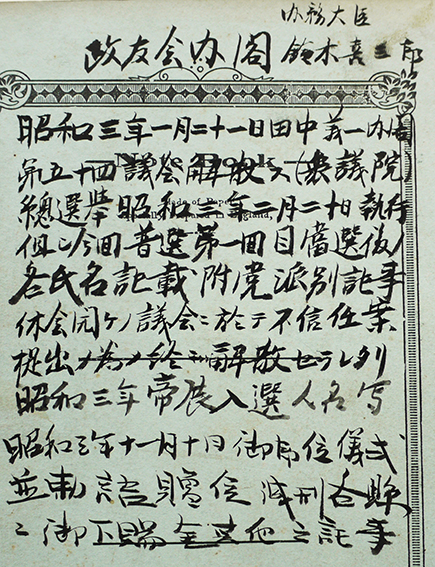 内務大臣
政友会内閣 鈴木喜三郎
昭和三年一月二十一日田中義一内閣
第五十四議会解散ス(衆議院)
Note Book
総選挙昭和三年二月二十日執行
Made of Paper
England,
但シ今回普選第一回目當選後ノ
各氏名記載附党派別記事
休会闭ケノ議会ニ於テ不信任案
提出ノ為メ終ニ解散セラレタリ
昭和三年帝展入選人名写
昭和三年十一月十日御即位儀式
並勅語贈位減刑各縣
ニ御下賜金其他之記事